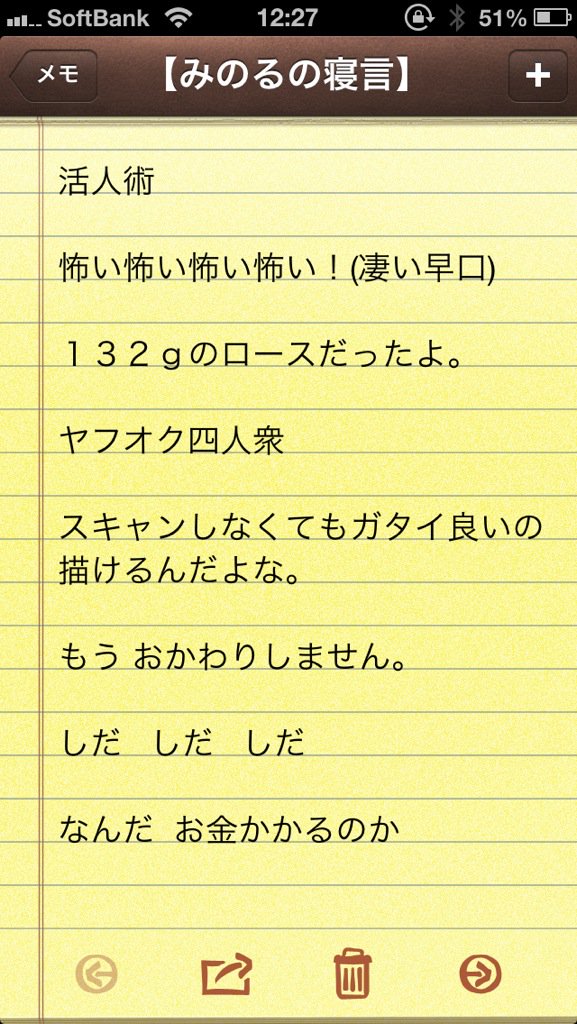 SoftBank 12:27 51%
メモ 【みのるの寝言】 +
活人術
怖い怖い怖い怖い！(凄い早口)
１３２ｇのロースだったよ。
ヤフオク四人衆
スキャンしなくてもガタイ良いの
描けるんだよな。
もう おかわりしません。
しだ　しだ　しだ
なんだ  お金かかるのか